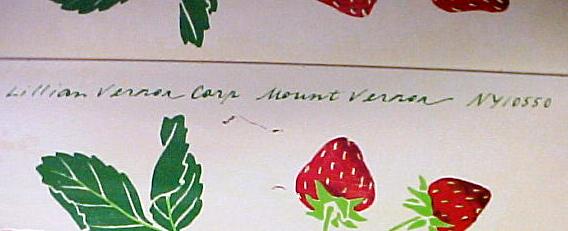 Lillian Vernon Corp Mount Vernon NY10550